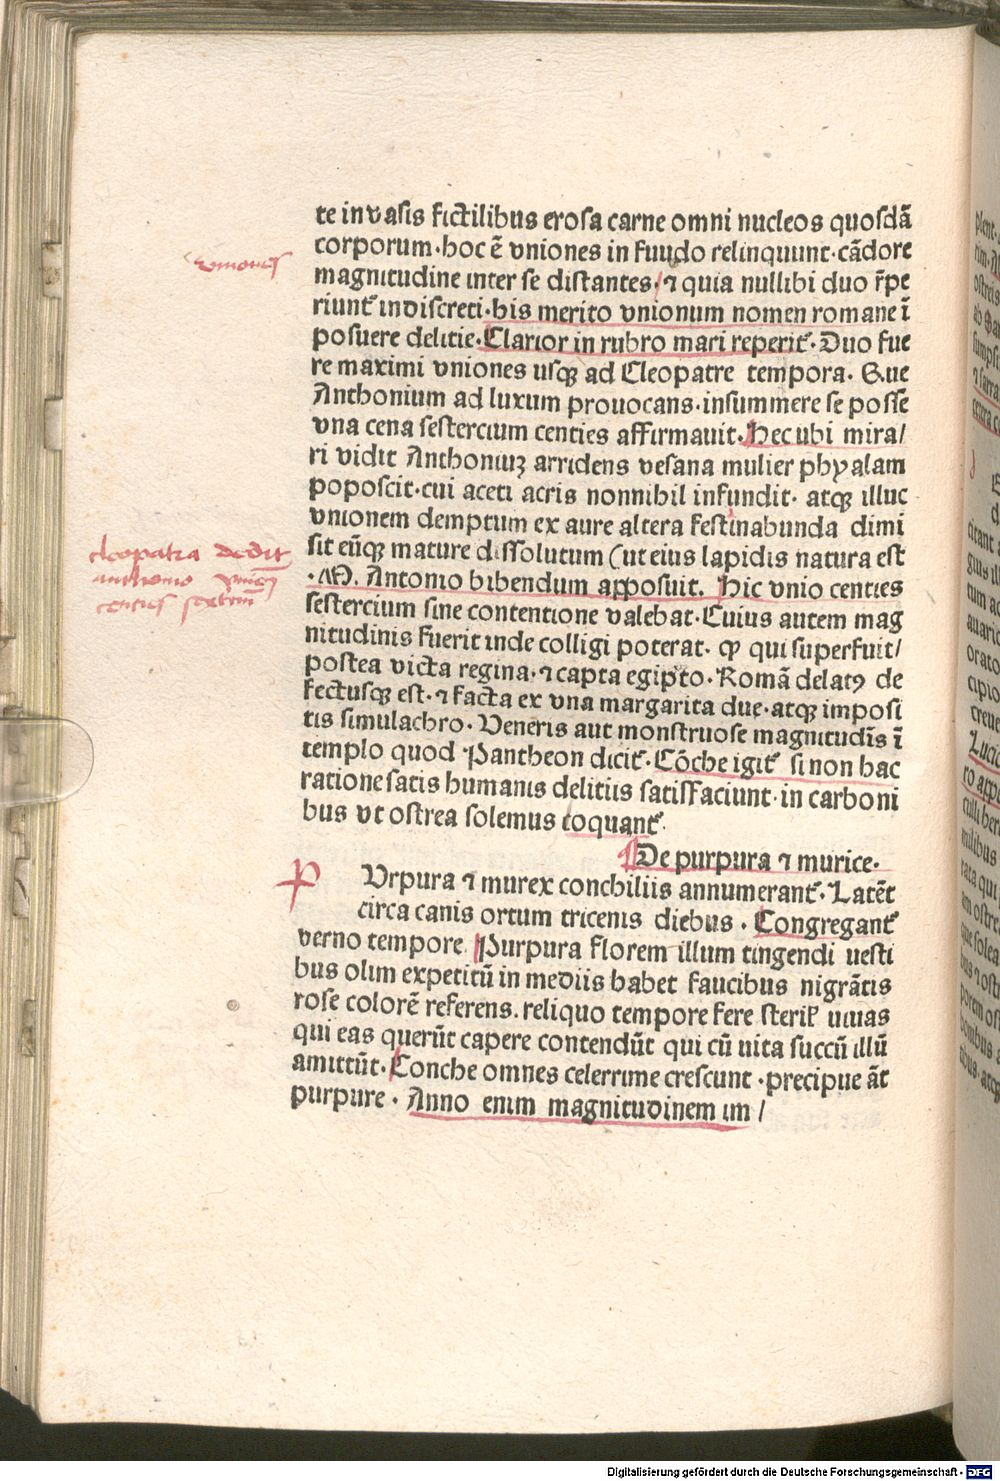 te in vasis fictilibus erosa carne omni nucleos quosdā
corporum·hoc ē vniones in fuudo relinquunt·cādore
vniones
magnitudine inter se distantes·/ ⁊ quia nullibi duo r̄pe
riunt᷑ indiscreti·his merito vnionum nomen romane ī
posuere delitie·Clarior in rubro mari reperit᷑·Duo fue
re maximi vniones usqꝫ ad Cleopatre tempora· Que
Anthonium ad luxum prouocans·insummere se posse
vna cena sestercium centies affirmauit·Hec ubi mira/
ri vidit Anthoniuꝫ arridens vesana mulier phyalam
poposcit·cui aceti acris nonnihil infundit· atqꝫ illuc
vnionem demptum ex aure altera festinabunda dimi
cleopatra dedit
anthonio
centies
sit eūqꝫ mature dissolutum (ut eius lapidis natura est
·M. Antonio bibendum apposuit. Hic vnio centies
sestercium sine contentione valebat·Cuius autem mag
nitudinis fuerit inde colligi poterat· ꝙ qui superfuit/
postea victa regina·⁊ capta egipto·Romā delatꝰ de
fectusqꝫ est·⁊ facta ex vna margarita due·atqꝫ imposi
tis simulachro·Veneris aut monstruose magnitudīs ī
templo quod Pantheon dicit᷑·Cōche igit᷑ si non hac
ratione satis humanis delitiis satisfaciunt·in carboni
bus vt ostrea solemus coquant᷑·
De purpura ⁊ murice·
P Vrpura ⁊ murex conchiliis annumerant᷑·Latēt
circa canis ortum tricenis diebus·Congregant᷑
verno tempore Purpura florem illum tingendi uesti
bus olim expetitū in mediis habet faucibus nigrātis
rose colorē referens·reliquo tempore fere steril᷑ uiuas
qui eas querūt capere contendūt qui cū uita succū illū
amittūt·Conche omnes celerrime crescunt·precipue āt
purpure·Anno enim magnitudinem im/
Digitalisierung gefördert durch die Deutsche Forschungsgemeinschaft - DFG